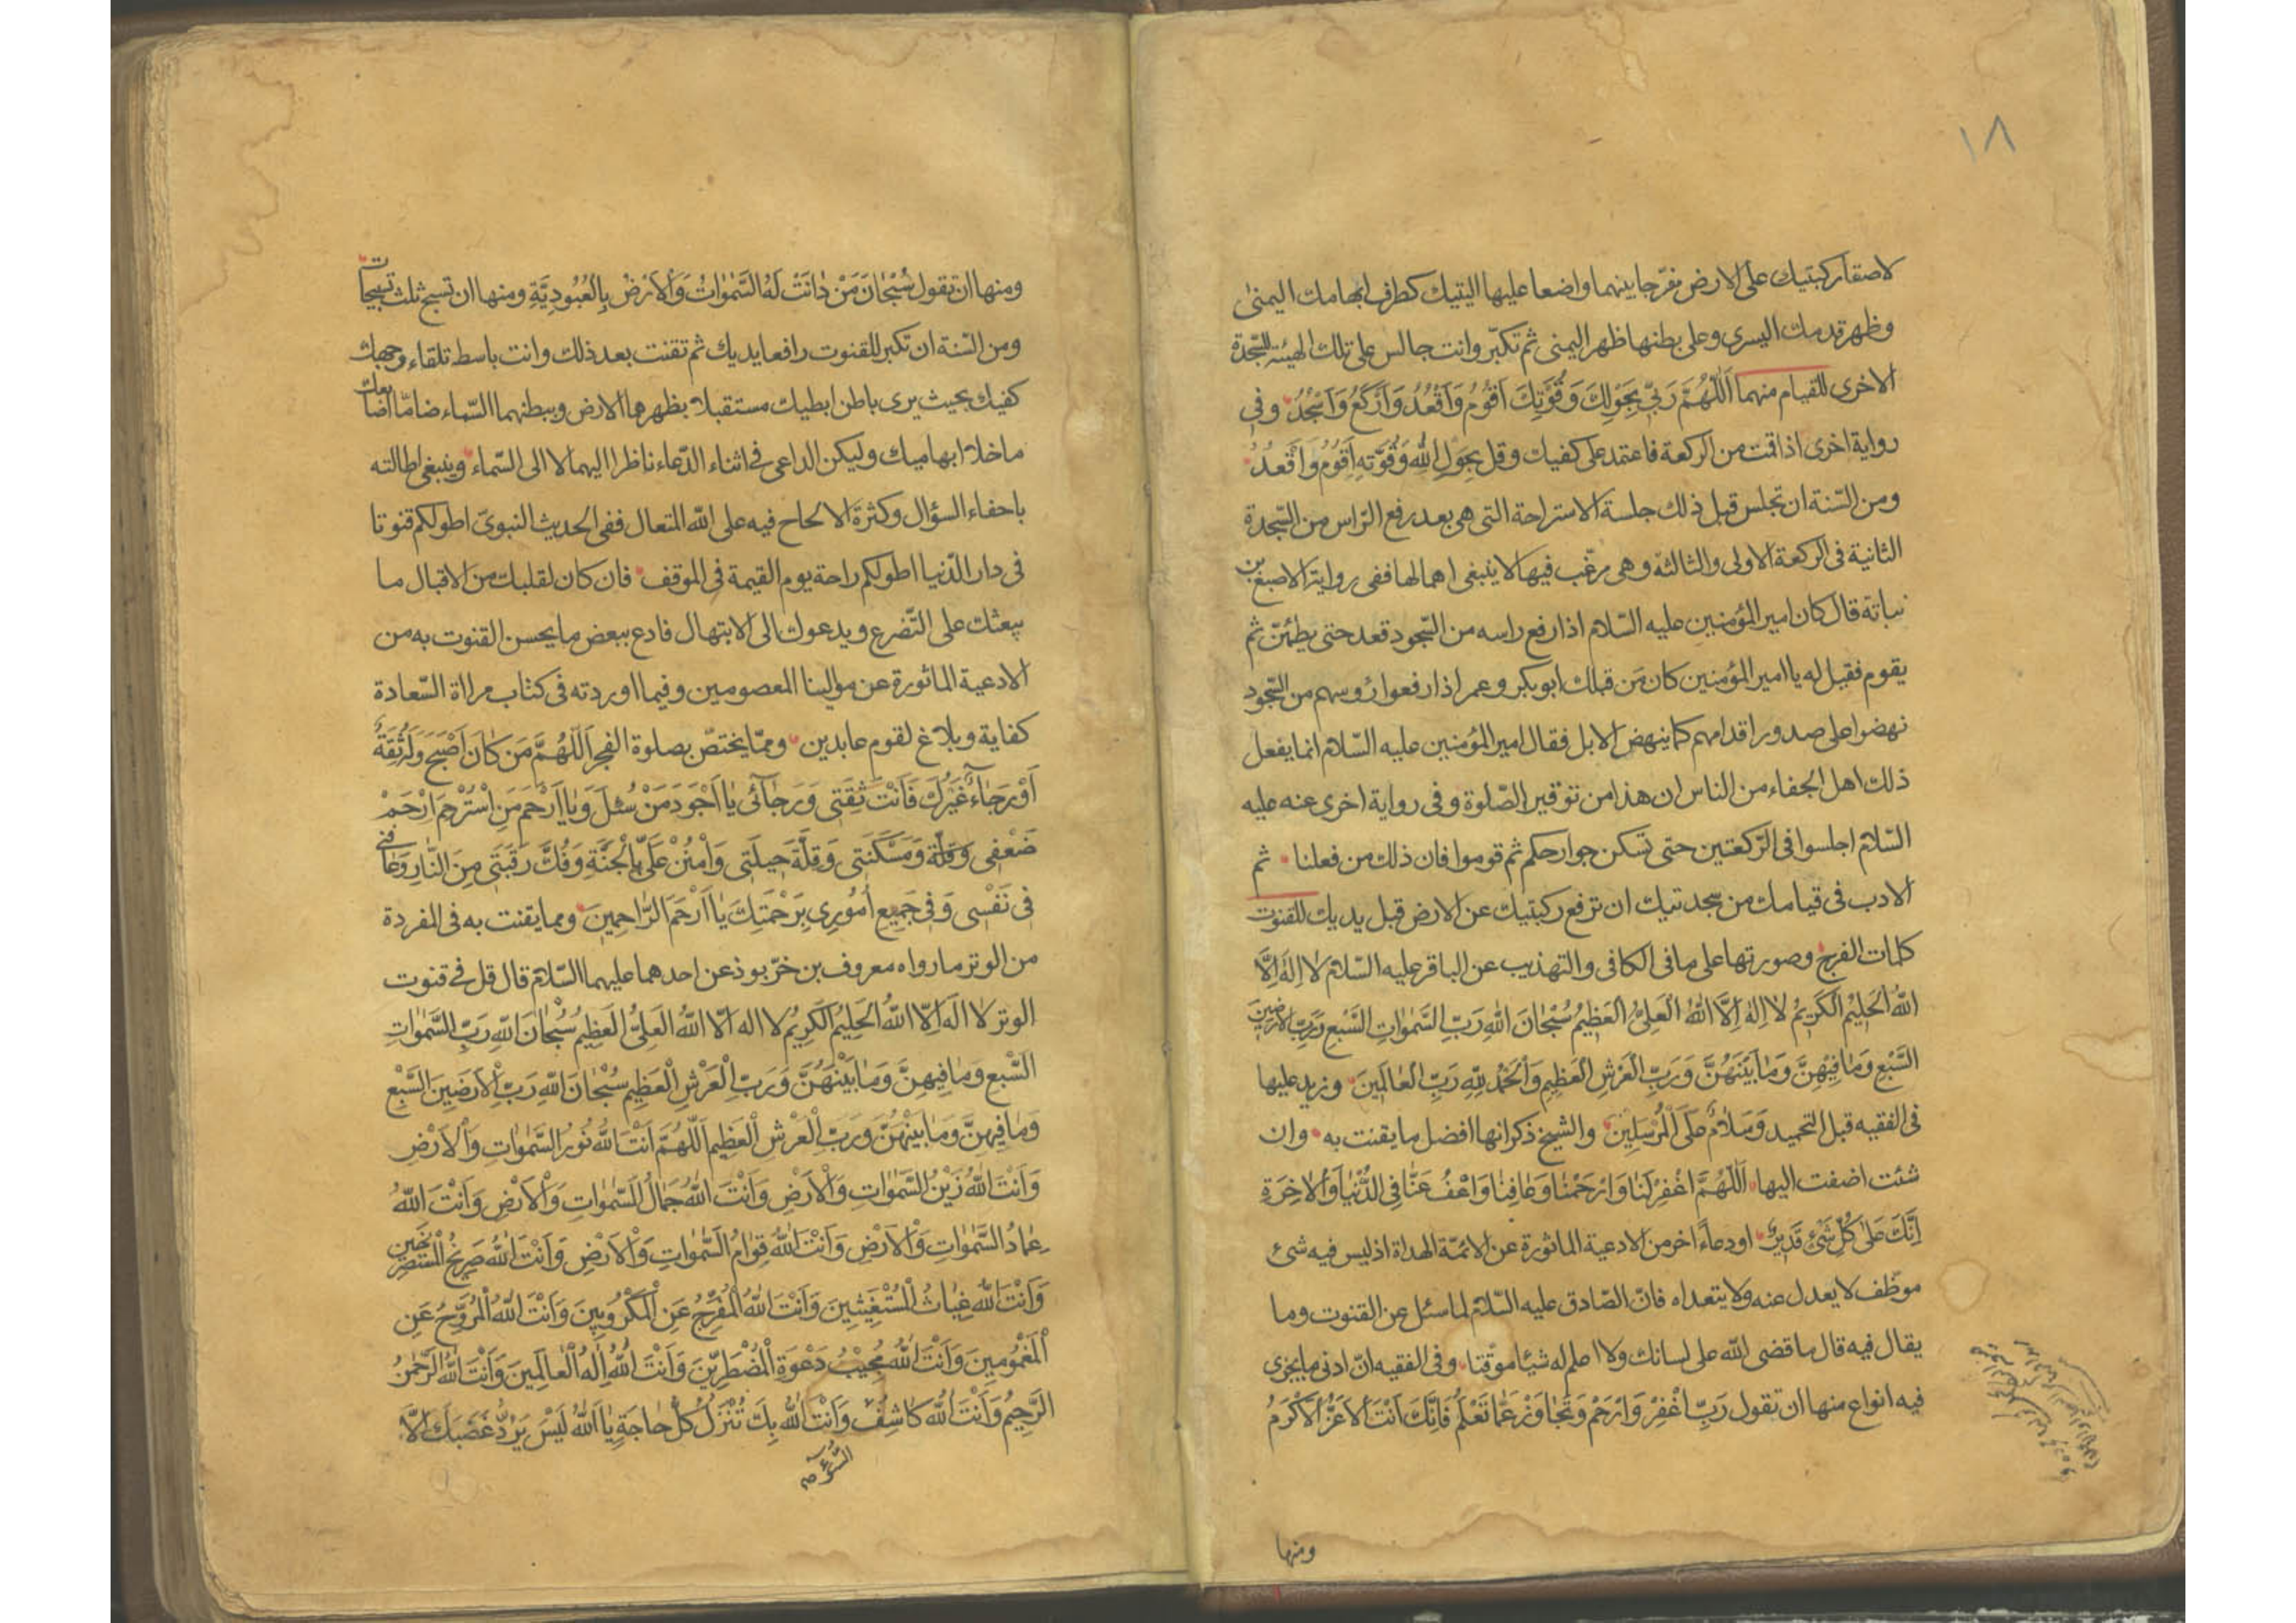 ١٨
لاصقا ركبتيك على الارض مفرجا بينهما واضعا عليها اليتيك كطرف ابهامك اليمنى
وظهر قدمك اليسرى وعلى بطنها ظهر اليمنى ثم تكبّر وانت جالس على تلك الهيئة للسّجدة
الاخرى للقيام منهما اَللّٰهُمَّ رَبّي بِحَوْلِكَ وَقُوَّتِكَ اَقُوْمُ وَاَقْعُدُ وَاَرْكَعُ وَاَسْجُدُ وفى
رواية اخرى اذا قمت من الركعة فاعتمد على كفيك وقل بِحَوْلِ اللّٰهِ وَقُوَّتِهِ اَقُوْمُ وَاَقْعُدُ
ومن السّنة ان تجلس قبل ذلك جلسة الاستراحة التى هى بعد رفع الرّاس من السّجدة
الثانية فى الركعة الاولى والثالثة وهى مرغّب فيها لا ينبغى اهمالها ففى رواية الاصبغ بن
نباتة قال كان امير المؤمنين عليه السّلام اذا رفع راسه من السّجود قعد حتى يطمئنّ ثم
يقوم فقيل له يا امير المؤمنين كان مَن قبلك ابو بكر وعمر اذا رفعوا رؤسهم من السّجود
نهضوا على صدور اقدامهم كما ينهض الابل فقال امير المؤمنين عليه السّلام انما يفعل
ذلك اهل الجفاء من الناس ان هذا من توقير الصّلوة وفى رواية اخرى عنه عليه
السّلام اجلسوا فى الرّكعتين حتى تسكن جوارحكم ثم قوموا فان ذلك من فعلنا ثم
الادب فى قيامك من سجدتيك ان ترفع ركبتيك عن الارض قبل يديك للقنوت
كلمات الفرج وصورتها على ما فى الكافى والتهذيب عن الباقر عليه السّلام لا اِلٰهَ اِلَّا
اللّٰهُ الْحَلِيْمُ الْكَرِيْمُ لا اِلٰهَ اِلَّا اللّٰهُ الْعَلِىُّ الْعَظِيْمُ سُبْحٰانَ اللّٰهِ رَبِّ السَّمٰوٰاتِ السَّبْعِ وَرَبِّ الْاَرَضِيْنَ
السَّبْعِ وَمٰا فِيْهِنَّ وَمٰا بَيْنَهُنَّ وَرَبِّ الْعَرْشِ الْعَظِيْمِ وَالْحَمْدُ لِلّٰهِ رَبِّ الْعٰالَمِيْنَ وزيد عليها
فى الفقيه قبل التحميد وَسَلٰامٌ عَلَى الْمُرْسَلِيْنَ والشيخ ذكر انها افضل ما يقنت به وان
شئت اضفت اليها اَللّٰهُمَّ اغْفِرْ لَنٰا وَارْحَمْنٰا وَعٰافِنٰا وَاعْفُ عَنّٰا فِى الدُّنْيٰا وَالْاٰخِرَةِ
اِنَّكَ عَلٰى كُلِّ شَىْءٍ قَدِيْرٌ او دعاءً اخر من الادعية الماثورة عن الائمّة الهداة اذ ليس فيه شئ
موظّف لا يعدل عنه ولا يتعداه فانّ الصّادق عليه السّلام لما سئل عن القنوت وما
يقال فيه قال ما قضى اللّه على لسانك ولا اعلم له شيئا موقّتا وفى الفقيه انّ ادنى ما يجزى
فيه انواع منها ان تقول رَبِّ اغْفِرْ وَارْحَمْ وَتَجٰاوَزْ عَمّٰا تَعْلَمُ فَاِنَّكَ اَنْتَ الْاَعَزُّ الْاَكْرَمُ
ومنها
ومنها ان تقول سُبْحٰانَ مَنْ دٰانَتْ لَهُ السَّمٰوٰاتُ وَالْاَرْضُ بِالْعُبُوْدِيَّةِ ومنها ان تسبح ثلث تسبيحات
ومن السّنة ان تكبر للقنوت رافعا يديك ثم تقنت بعد ذلك وانت باسط تلقاء وجهك
كفيك بحيث يرى باطن ابطيك مستقبلا بظهرهما الارض وببطنهما السّماء ضامّا اصابعك
ما خلا ابهاميك وليكن الداعى فى اثناء الدّعاء ناظرا اليهما لا الى السّماء وينبغى اطالته
باحفاء السؤال وكثرة الالحاح فيه على اللّه المتعال ففى الحديث النبوىّ اطولكم قنوتا
فى دار الدّنيا اطولكم راحة يوم القيمة فى الموقف فان كان لقلبك من الاقبال ما
يبعثك على التّضرع ويدعوك الى الابتهال فادع ببعض ما يحسن القنوت به من
الادعية الماثورة عن موالينا المعصومين وفيما اوردته فى كتاب مراة السّعادة
كفاية وبلاغ لقوم عابدين وممّا يختصّ بصلوة الفجر اَللّٰهُمَّ مَن كٰانَ اَصْبَحَ وَلَهُ ثِقَةٌ
اَوْ رَجٰاءٌ غَيْرُكَ فَاَنْتَ ثِقَتِى وَرَجٰائِى يٰا اَجْوَدَ مَنْ سُئِلَ وَيٰا اَرْحَمَ مَنِ اسْتُرْحِمَ ارْحَمْ
ضَعْفِى وَقِلَّة وَمَسْكَنَتِى وَقِلَّةَ حِيلَتِى وَامْنُنْ عَلَىَّ بِالْجَنَّةِ وَفُكَّ رَقَبَتِى مِنَ النّٰارِ وَعٰافِنِى
فِى نَفْسِى وَفِى جَمِيعِ اُمُوْرِى بِرَحْمَتِكَ يٰا اَرْحَمَ الرّٰاحِمِينَ ومما يقنت به فى المفردة
من الوتر ما رواه معروف بن خرّبوذ عن احدهما عليهما السّلام قال قل فى قنوت
الوتر لا اله اِلّا اللّٰهُ الْحَلِيْمُ الْكَرِيْمُ لا اله الّا اللّٰهُ الْعَلِىُّ الْعَظِيْمُ سُبْحٰانَ اللّٰهِ رَبِّ السَّمٰوٰاتِ
السَّبْعِ وَمٰا فِيهِنَّ وَمٰا بَيْنَهُنَّ وَرَبِّ الْعَرْشِ الْعَظِيْمِ سُبْحٰانَ اللّٰهِ رَبِّ الْاَرَضِيْنَ السَّبْعِ
وَمٰا فِيهِنَّ وَمٰا بَيْنَهُنَّ وَرَبِّ الْعَرْشِ الْعَظِيْمِ اَللّٰهُمَّ اَنْتَ اللّٰهُ نُوْرُ السَّمٰوٰاتِ وَالْاَرْضِ
وَاَنْتَ اللّٰهُ زَيْنُ السَّمٰوٰاتِ وَالْاَرْضِ وَاَنْتَ اللّٰهُ جَمٰالُ السَّمٰوٰاتِ وَالْاَرْضِ وَاَنْتَ اللّٰهُ
عِمٰادُ السَّمٰوٰاتِ وَالْاَرْضِ وَاَنْتَ اللّٰهُ قِوٰامُ السَّمٰوٰاتِ وَالْاَرْضِ وَاَنْتَ اللّٰهُ صَرِيْخُ الْمُسْتَصْرِخِيْنَ
وَاَنْتَ اللّٰهُ غِيٰاثُ الْمُسْتَغِيْثِيْنَ وَاَنْتَ اللّٰهُ الْمُفَرِّجُ عَنِ الْمَكْرُوْبِيْنَ وَاَنْتَ اللّٰهُ الْمُرَوِّحُ عَنِ
الْمَغْمُوْمِيْنَ وَاَنْتَ اللّٰهُ مُجِيْبُ دَعْوَةِ الْمُضْطَرِّيْنَ وَاَنْتَ اللّٰهُ اِلٰهُ الْعٰالَمِيْنَ وَاَنْتَ اللّٰهُ الرَّحْمٰنُ
الرَّحِيْمُ وَاَنْتَ اللّٰهُ كٰاشِفُ وَاَنْتَ اللّٰهُ بِكَ تُنْزَلُ كُلُّ حٰاجَةٍ يٰا اَللّٰهُ لَيْسَ يَرُدُّ غَضَبَكَ اِلّٰا
السُّوْءِ صح